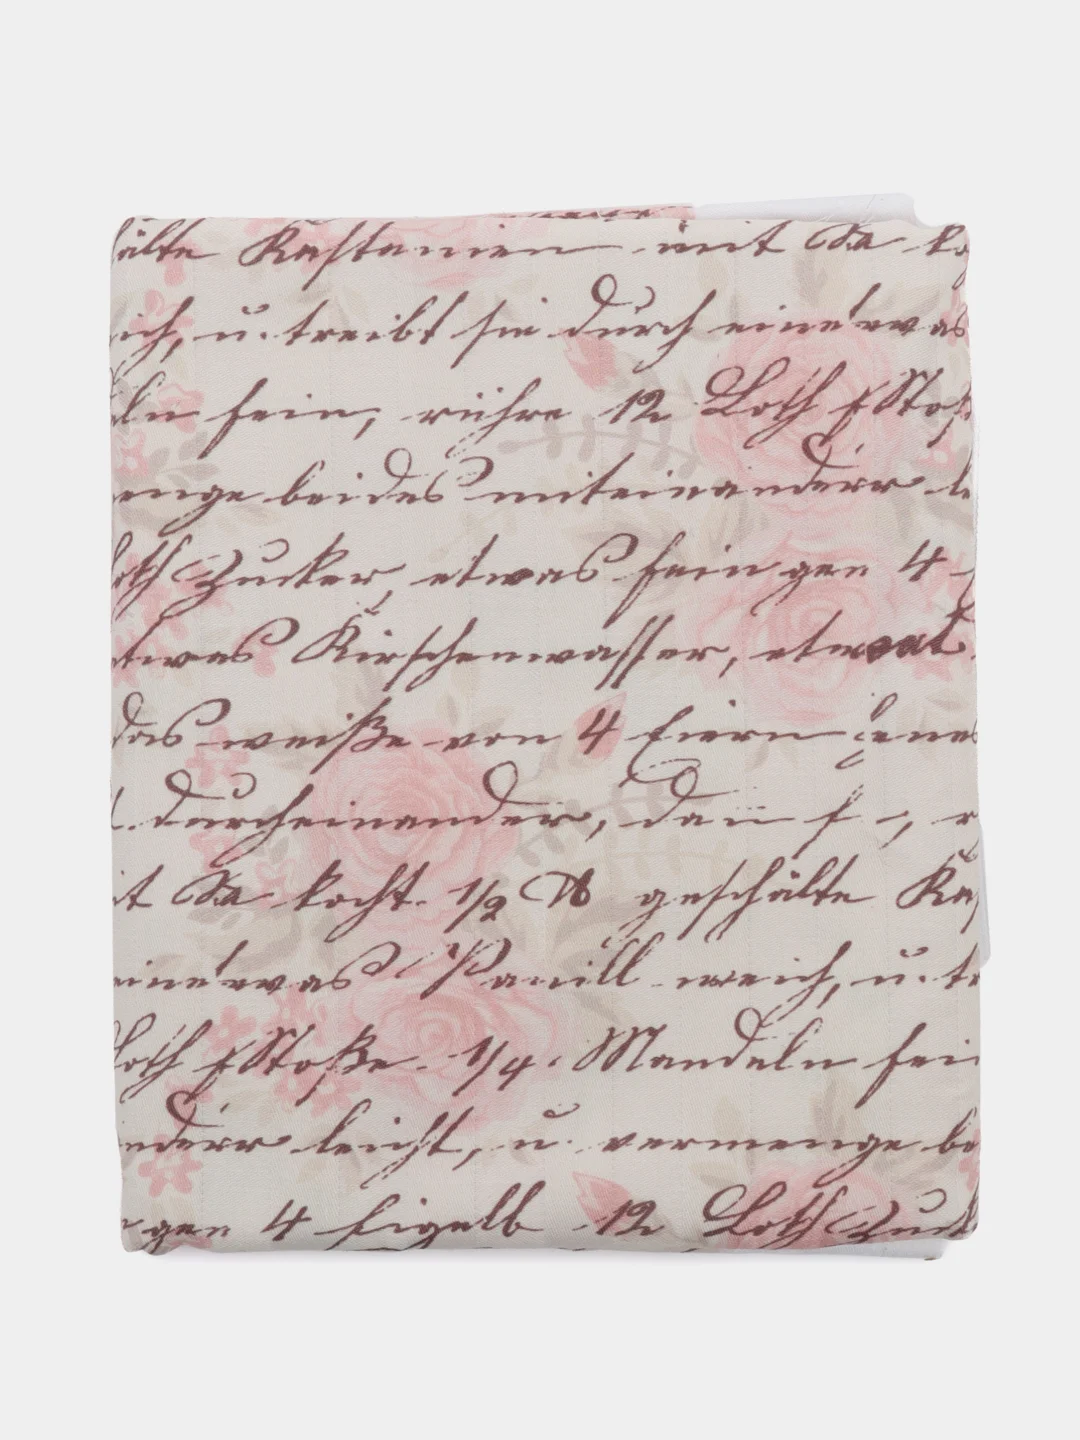 älte Kastanien mit Sa ko
ich, u. treibt sie durch eine'evas
ln fein, rühre 12 Loth Stoß
enge beides miteinanderr le
oth Zucker, etwas fein gen 4
etwas Kirschenwasser, etwas
das weiße von 4 Eiern
durcheinander, dan
it Sa kocht. 1/2 ℔ geschälte Kas
eine'evas Vanill weich, u. tr
Loth Stoße. 1/4. Mandeln fei
nderr leicht, u. vermenge be
gen 4 Eigelb 12 Loth Zuck